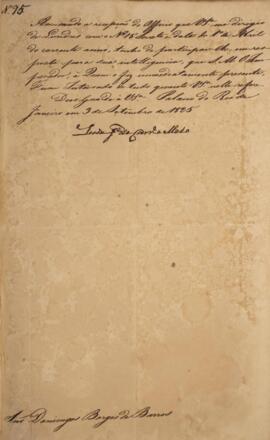 Nº 75
Acusando a recepção do Officio que VSª me dirigio
de Londres com o Nº 15 data do do 1º de Abril
do corrente anno, tenho de participar-lhe, em res-
posta para sua intelligencia, que S. M. O Im-
perador, a Quem o fiz immediatamente presente,
Ficou Inteirado de tudo quanto VSª nelle refere.
Deos Guarde a VSª Palacio do Rio de
Janeiro em 3 de Setembro de 1825
Luis José de Carvº e Mello
Snr Domingos Borges de Barros